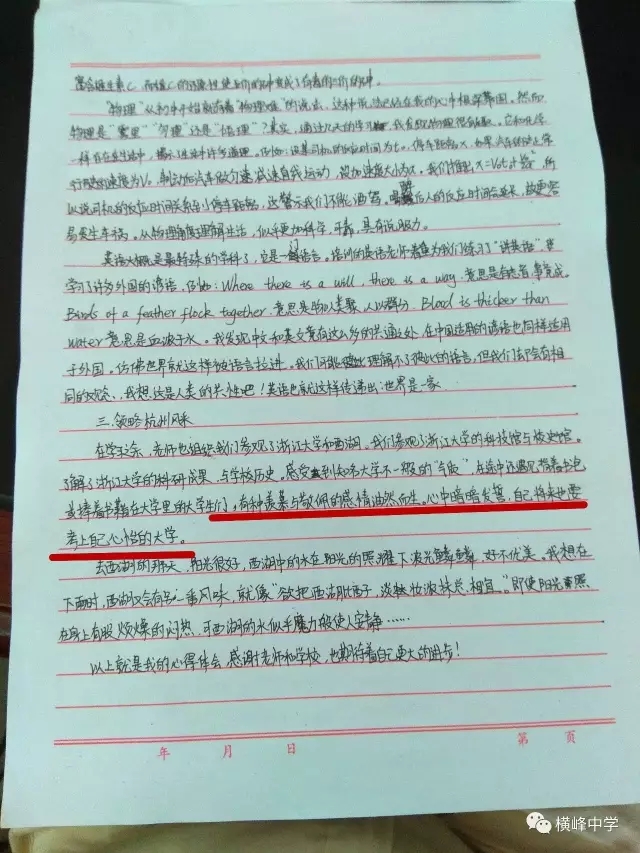 离合维生素C,而维C的还原性使三价的铁变成了
"物理"从初中开始就有着"物理难"的说法,这种说法已经在我的心中根深蒂固。然而
物理是"雾里""勿理"还是"悟理"?其实,通过几天的学习,我发现物理很有趣。它和化学
一样存在生活中,揭示生活中许多道理。例如:设某司机的反应时间为t0,停车距离为x,如果汽车以正常
行驶的速度为V0,制动后汽车做匀速减速直线运动,设加速度大小为a。我们推出x=V0t0+
以说司机的反应时间关系着小停车距离,这警示我们不能酒驾,喝醉后人的反应时间会延长,故更容
易发生车祸。从物理角度理解生活,似乎更加科学,可靠,具有说服力。
英语大概是最特殊的学科了,它是一门语言。培训的英语老师着重为我们练习了"讲英语",更
学习了许多外国的谚语,例如:Where there is a will, there is a way.意思是有志者,事竟成。
Birds of a feather flock together.意思是物以类聚,人以群分 Blood is thicker than
water 意思是血浓于水。我发现中文和英文竟有这么多的共通之处,在中国适用的谚语也同样适用
于外国。仿佛世界就这样被语言拉进。我们可能理解不了彼此的语言,但我们却会有相
同的观念、我想,这是人类的共性吧!英语也就这样传递出:世界是一家
三.领略杭州风采
在学习之余,老师也组织我们参观了浙江大学和西湖。我们参观了浙江大学的科技馆与校史馆。
了解了浙江大学的科研成果,与学校历史。感受到知名大学不一般的"气版",在途中还遇见抱着书包
或捧着书籍在大学里的大学生们,有种羡慕与敬佩的感情油然而生。心中暗暗发誓,自己将来也要
考上自己心怡的大学。
去西湖的那天,阳光很好,西湖中的水在阳光的照耀下波光粼粼,好不优美。我想在
下雨时,西湖又会有另一番风味,就像"欲把西湖比西子,淡妆浓抹总相宜。"即使阳光直照
在身上有股烦燥的闷热,可西湖的水似乎魔力般使人安静……
以上就是我的心得体会,感谢老师和学校,也期待着自己更大的进步!
年 月 日 第 页
横峰中学